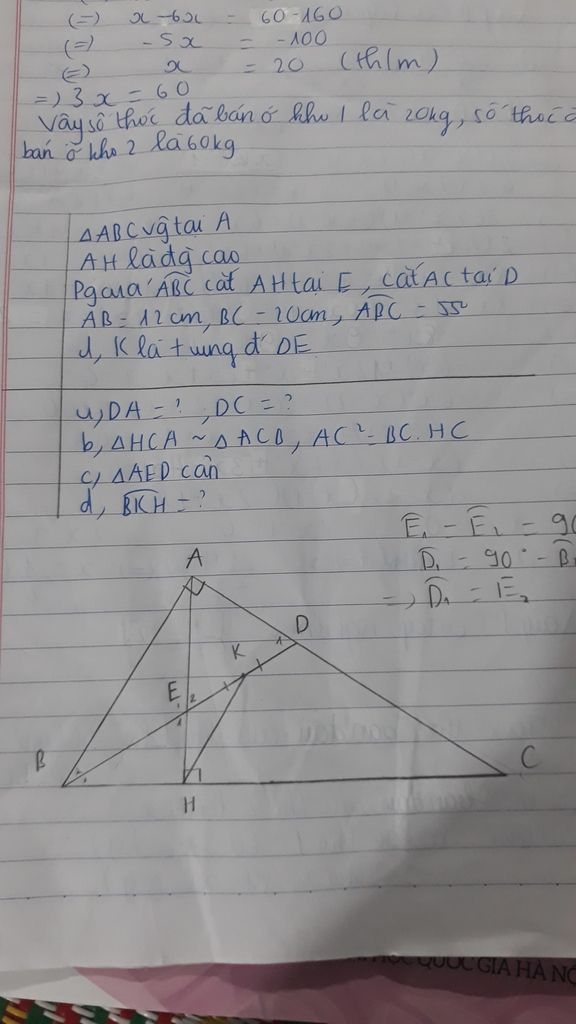 (=) x - 6x = 60-160
(=) - 5x = -100
(=) x = 20 (th/m)
=) 3x = 60
Vậy số thóc đã bán ở kho 1 là 20kg, số thóc
bán ở kho 2 là 60kg
ΔABC vg tại A
AH là đg cao
Pgcủa ABC cắt AH tại E, cắt AC tại D
AB = 12cm, BC = 20cm, ABC = 55°
d, K là trung đ' DE
a, DA = ? , DC = ?
b, ΔHCA ~ ΔACB, AC² = BC. HC
c, ΔAED cân
d, BKH = ?
E₁ = E₂ = 90
D₁ = 90° - B
=> D₁ = E₂
A
D
K
1
E
2
1
B
C
H
HỌC QUỐC GIA HÀ NỘ